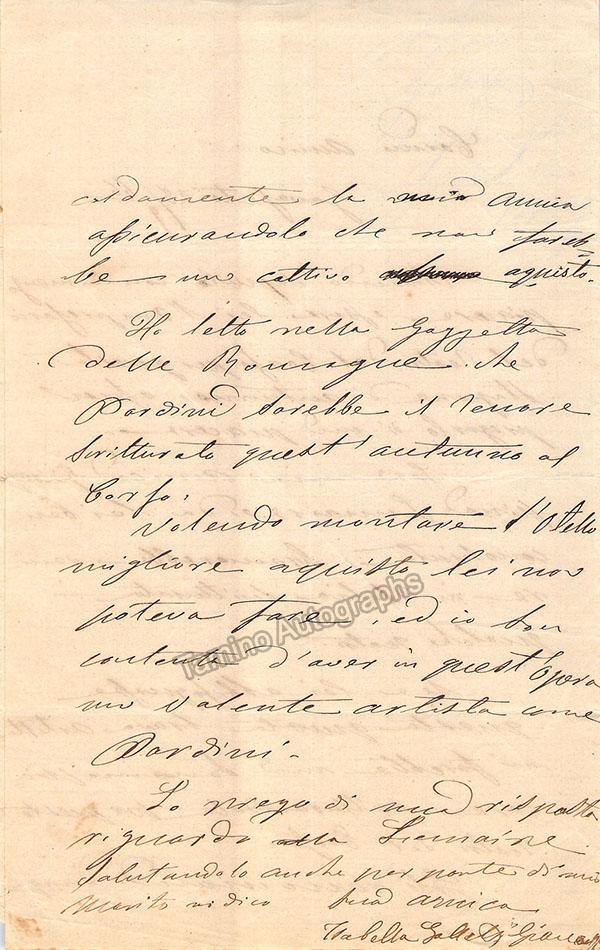 caldamente la mia amica
assicurandolo che non fareb=
be un cattivo aquisto.
Ho letto nella Gazzetta
delle Romagne che
Pardini sarebbe il tenore
scritturato quest'autunno al
Corso.
Volendo montare l'Otello
migliore aquisto lei non
poteva fare, ed io son
contenta d'aver in quest'opera
un valente artista come
Pardini.
La prego di una risposta
riguardo alla Lemaire
Salutandolo anche per parte di mio
marito mi dico Sua amica
Isabella Galletti Gianoli
Tamino Autographs